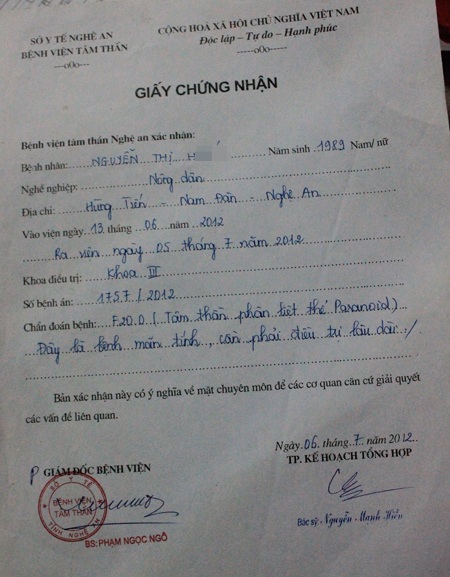 SỞ Y TẾ NGHỆ AN
BỆNH VIỆN TÂM THẦN
---o0o---
CỘNG HOÀ XÃ HỘI CHỦ NGHĨA VIỆT NAM
Độc lập – Tự do – Hạnh phúc
---o0o---
GIẤY CHỨNG NHẬN
Bệnh viện tâm thần Nghệ an xác nhận:
Bệnh nhân: NGUYỄN THỊ H Năm sinh 1989 Nam/ nữ
Nghề nghiệp: Nông dân
Địa chỉ: Hùng Tiến - Nam Đàn - Nghệ An
Vào viện ngày 13 tháng 06 năm 2012
Ra viện ngày 05 tháng 7 năm 2012
Khoa điều trị: Khoa III
Số bệnh án: 1757 / 2012
Chẩn đoán bệnh: F20.0 (Tâm thần phân liệt thể Paranoid)
Đây là bệnh mãn tính, cần phải điều trị lâu dài ./
Bản xác nhận này có ý nghĩa về mặt chuyên môn để các cơ quan căn cứ giải quyết
các vấn đề liên quan.
Ngày 06 tháng 7 năm 2012
P GIÁM ĐỐC BỆNH VIỆN
TP. KẾ HOẠCH TỔNG HỢP
SỞ Y TẾ
BỆNH VIỆN
TÂM THẦN
TỈNH NGHỆ AN
BS: PHẠM NGỌC NGÔ
Bác sỹ: Nguyễn Mạnh Hiền